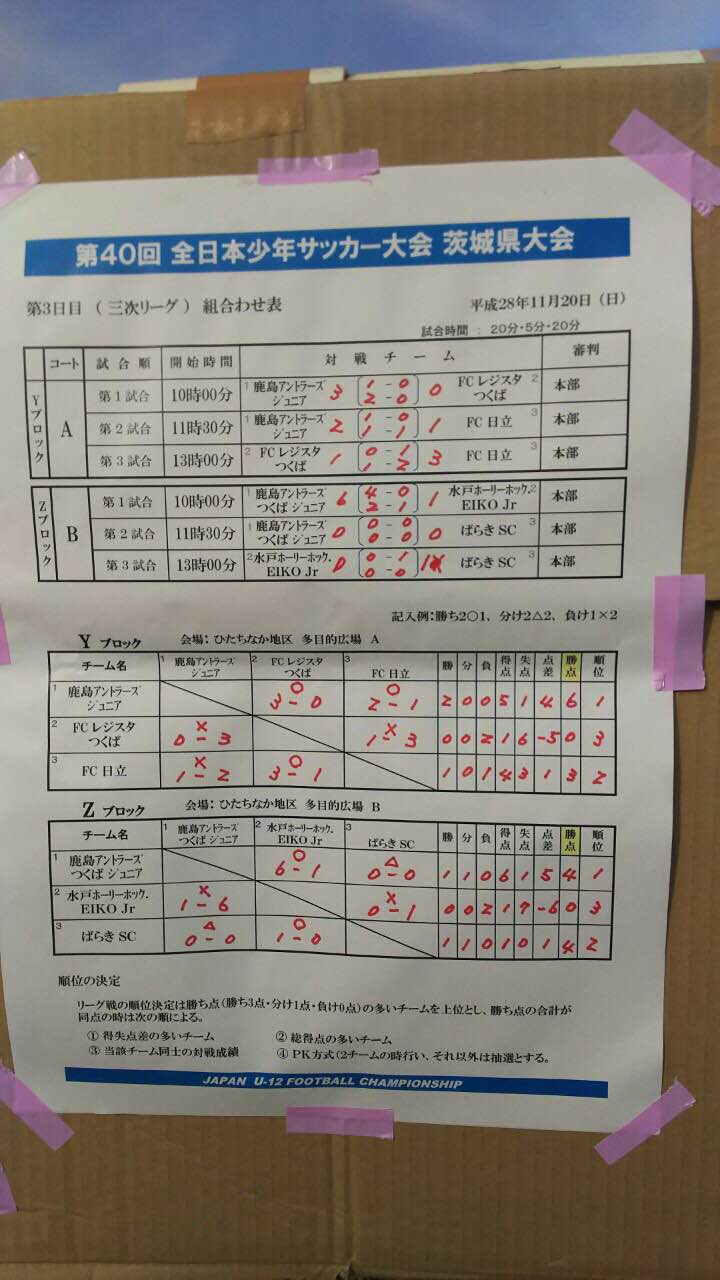 第40回 全日本少年サッカー大会 茨城県大会
第3日目 ( 三次リーグ ) 組合わせ表 平成28年11月20日(日)
試合時間 : 20分・5分・20分
コート 試合順 開始時間 対戦チーム 審判
Yブロック A
第1試合 10時00分 1 鹿島アントラーズ ジュニア 3 (1-0 2-0) 0 FCレジスタ つくば 2 本部
第2試合 11時30分 1 鹿島アントラーズ ジュニア 2 (1-0 1-1) 1 FC日立 3 本部
第3試合 13時00分 2 FCレジスタ つくば 1 (0-1 1-2) 3 FC日立 3 本部
Zブロック B
第1試合 10時00分 1 鹿島アントラーズ つくばジュニア 6 (4-0 2-1) 1 水戸ホーリーホック. EIKO Jr 2 本部
第2試合 11時30分 1 鹿島アントラーズ つくばジュニア 0 (0-0 0-0) 0 ばらきSC 3 本部
第3試合 13時00分 2 水戸ホーリーホック. EIKO Jr 0 (0-1 0-0) 1 ばらきSC 3 本部
記入例:勝ち2○1、分け2△2、負け1×2
Y ブロック 会場:ひたちなか地区 多目的広場 A
チーム名 1 鹿島アントラーズ ジュニア 2 FCレジスタ つくば 3 FC日立 勝 分 負 得点 失点 点差 勝点 順位
1 鹿島アントラーズ ジュニア ○ 3-0 ○ 2-1 2 0 0 5 1 4 6 1
2 FCレジスタ つくば × 0-3 × 1-3 0 0 2 1 6 -5 0 3
3 FC日立 × 1-2 ○ 3-1 1 0 1 4 3 1 3 2
Z ブロック 会場:ひたちなか地区 多目的広場 B
チーム名 1 鹿島アントラーズ つくばジュニア 2 水戸ホーリーホック. EIKO Jr 3 ばらきSC 勝 分 負 得点 失点 点差 勝点 順位
1 鹿島アントラーズ つくばジュニア ○ 6-1 △ 0-0 1 1 0 6 1 5 4 1
2 水戸ホーリーホック. EIKO Jr × 1-6 × 0-1 0 0 2 1 7 -6 0 3
3 ばらきSC △ 0-0 ○ 1-0 1 1 0 1 0 1 4 2
順位の決定
リーグ戦の順位決定は勝ち点(勝ち3点・分け1点・負け0点)の多いチームを上位とし、勝ち点の合計が
同点の時は次の順による。
① 得失点差の多いチーム ② 総得点の多いチーム
③ 当該チーム同士の対戦成績 ④ PK方式(2チームの時行い、それ以外は抽選とする。
JAPAN U-12 FOOTBALL CHAMPIONSHIP